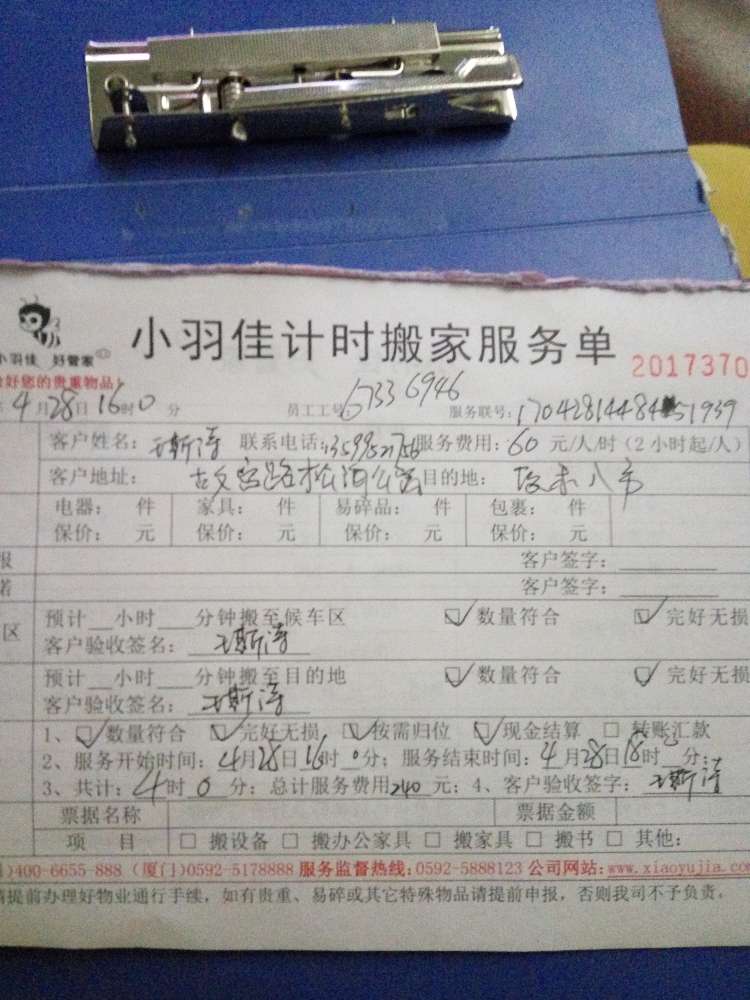 小羽佳计时搬家服务单
小羽佳 好管家
2017370
好您的贵重物品!
4月28日16时0分 员工工号: 67336946 服务联号:
客户姓名: 王斯涛 联系电话: 服务费用: 60 元/人/时(2小时起/人)
客户地址: 目的地:
电器: 件 家具: 件 易碎品: 件 包裹: 件
保价: 元 保价: 元 保价: 元 保价: 元
报 客户签字:
诺 客户签字:
区 预计__小时___分钟搬至候车区 ☑数量符合 ☑完好无损
客户验收签名: 王斯涛
预计__小时___分钟搬至目的地 ☑数量符合 ☑完好无损
客户验收签名: 王斯涛
1、☑数量符合 ☑完好无损 ☑按需归位 ☑现金结算 □ 转账汇款
2、服务开始时间: 4月28日16时0分; 服务结束时间: 4月28日18时0分;
3、共计: 4时0分; 总计服务费用240元; 4、客户验收签字: 王斯涛
票据名称 票据金额
项 目 □ 搬设备 □ 搬办公家具 □ 搬家具 □ 搬书 □ 其他:
)400-6655-888 (厦门)0592-5178888 服务监督热线:0592-5888123 公司网站:www.xiaoyujia.com
请提前办理好物业通行手续,如有贵重、易碎或其它特殊物品请提前申报,否则我司不予负责。